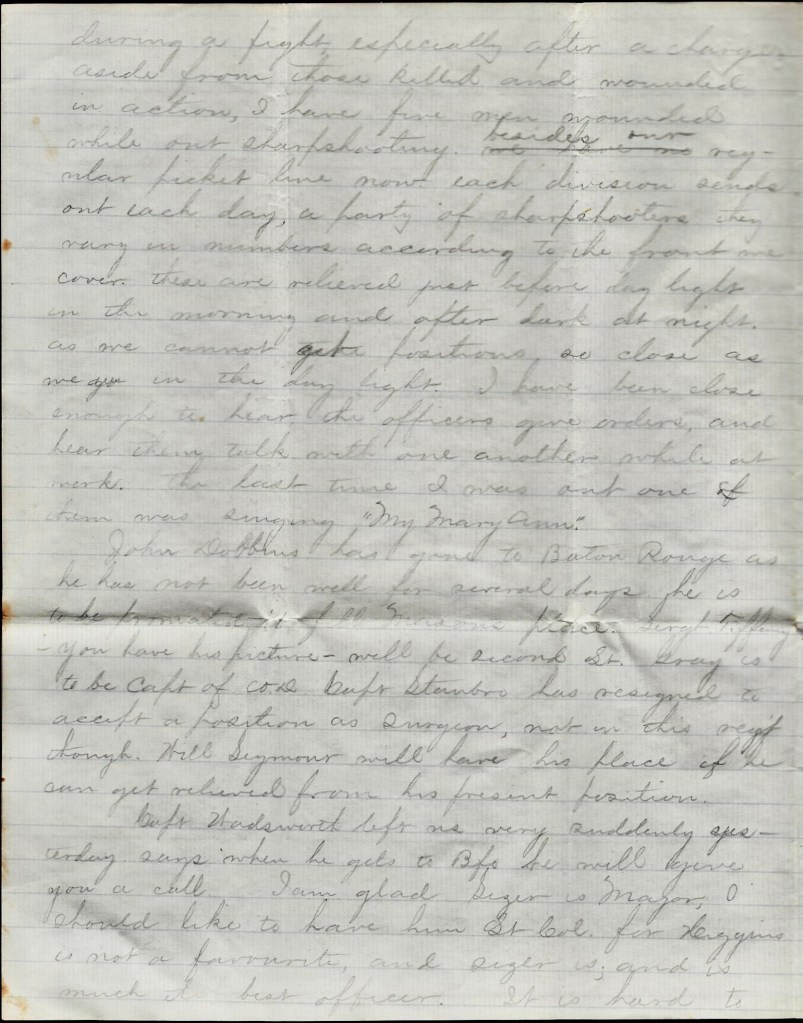 during a fight, especially after a charge
aside from those killed and wounded
in action, I have five men wounded
while out sharpshooting. besides our reg-
ular picket line now each division sends
out each day, a party of sharpshooters they
vary in numbers according to the front we
cover. these are relieved just before day light
in the morning and after dark at night.
as we cannot get positions, so close as
we in the day light. I have been close
enough to hear the officers give orders, and
hear them talk with one another while at
work. The last time I was out one of
them was singing "My Mary Ann".
John Dobbins has gone to Baton Rouge as
he has not been well for several days he is
to be promoted fill place. Sergt
- you have his picture - will be second Lt. Gray is
to be Capt of Co D Capt Stanbro has resigned to
accept a position as Surgeon, not in this regt
though. Will Seymour will have his place if he
can get relieved from his present position.
Capt Wadsworth left us very suddenly yes-
terday says when he gets to Bflo he will give
you a call. I am glad Sizer is Major, I
should like to have him Lt Col. for Higgins
is not a favourite, and Sizer is; and is
much the best officer. It is hard to